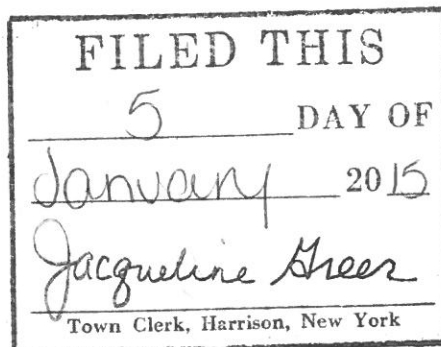 FILED THIS
5 DAY OF
January 2015
Jacqueline Greer
Town Clerk, Harrison, New York